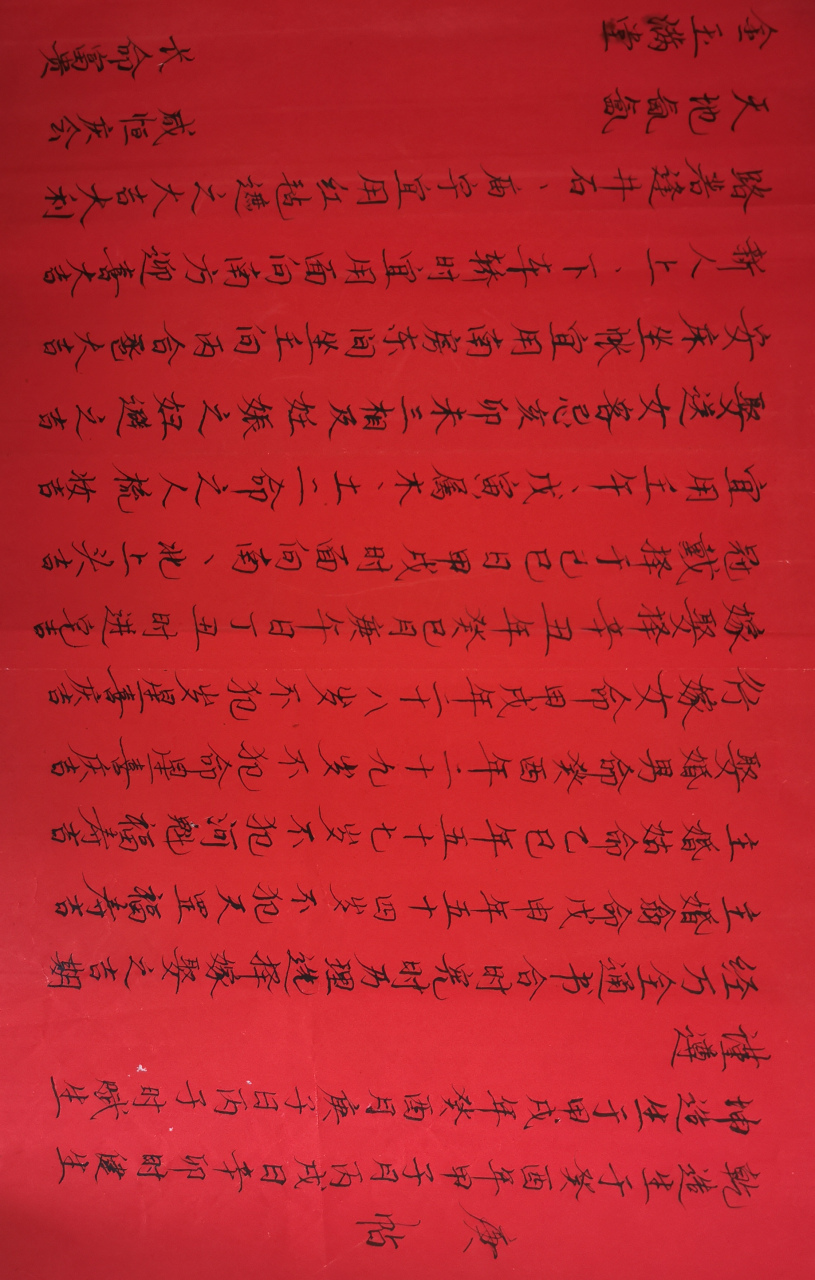 庚帖
乾造生于癸酉年甲子月丙戌日辛卯时健生
坤造生于甲戌年癸酉月庚子日丙子时赋生
谨遵
经万全通书合时宪时乃理选择嫁娶之吉期
主婚翁命戊申年五十四岁不犯天罡福寿吉
主婚姑命乙巳年五十七岁不犯河魁福寿吉
娶婚男命癸酉年二十九岁不犯命星喜庆吉
行嫁女命甲戌年二十八岁不犯岁星喜庆吉
嫁娶择辛丑年癸巳月庚午日丁丑时进宅吉
冠戴择于己巳日甲戌时面向南、北上头吉
宜用壬午、戊寅属木、土二命之人梳妆吉
娶送女客忌亥卯未三相及妊娠之妇避之吉
安床坐帐宜用南房东间坐壬向丙合卺大吉
新人上、下车轿时宜用面向南方迎喜大吉
路若逢井石、庙宇宜用红毡遮之大吉大利
天地氤氲 咸恒庆会
金玉满堂 长命富贵